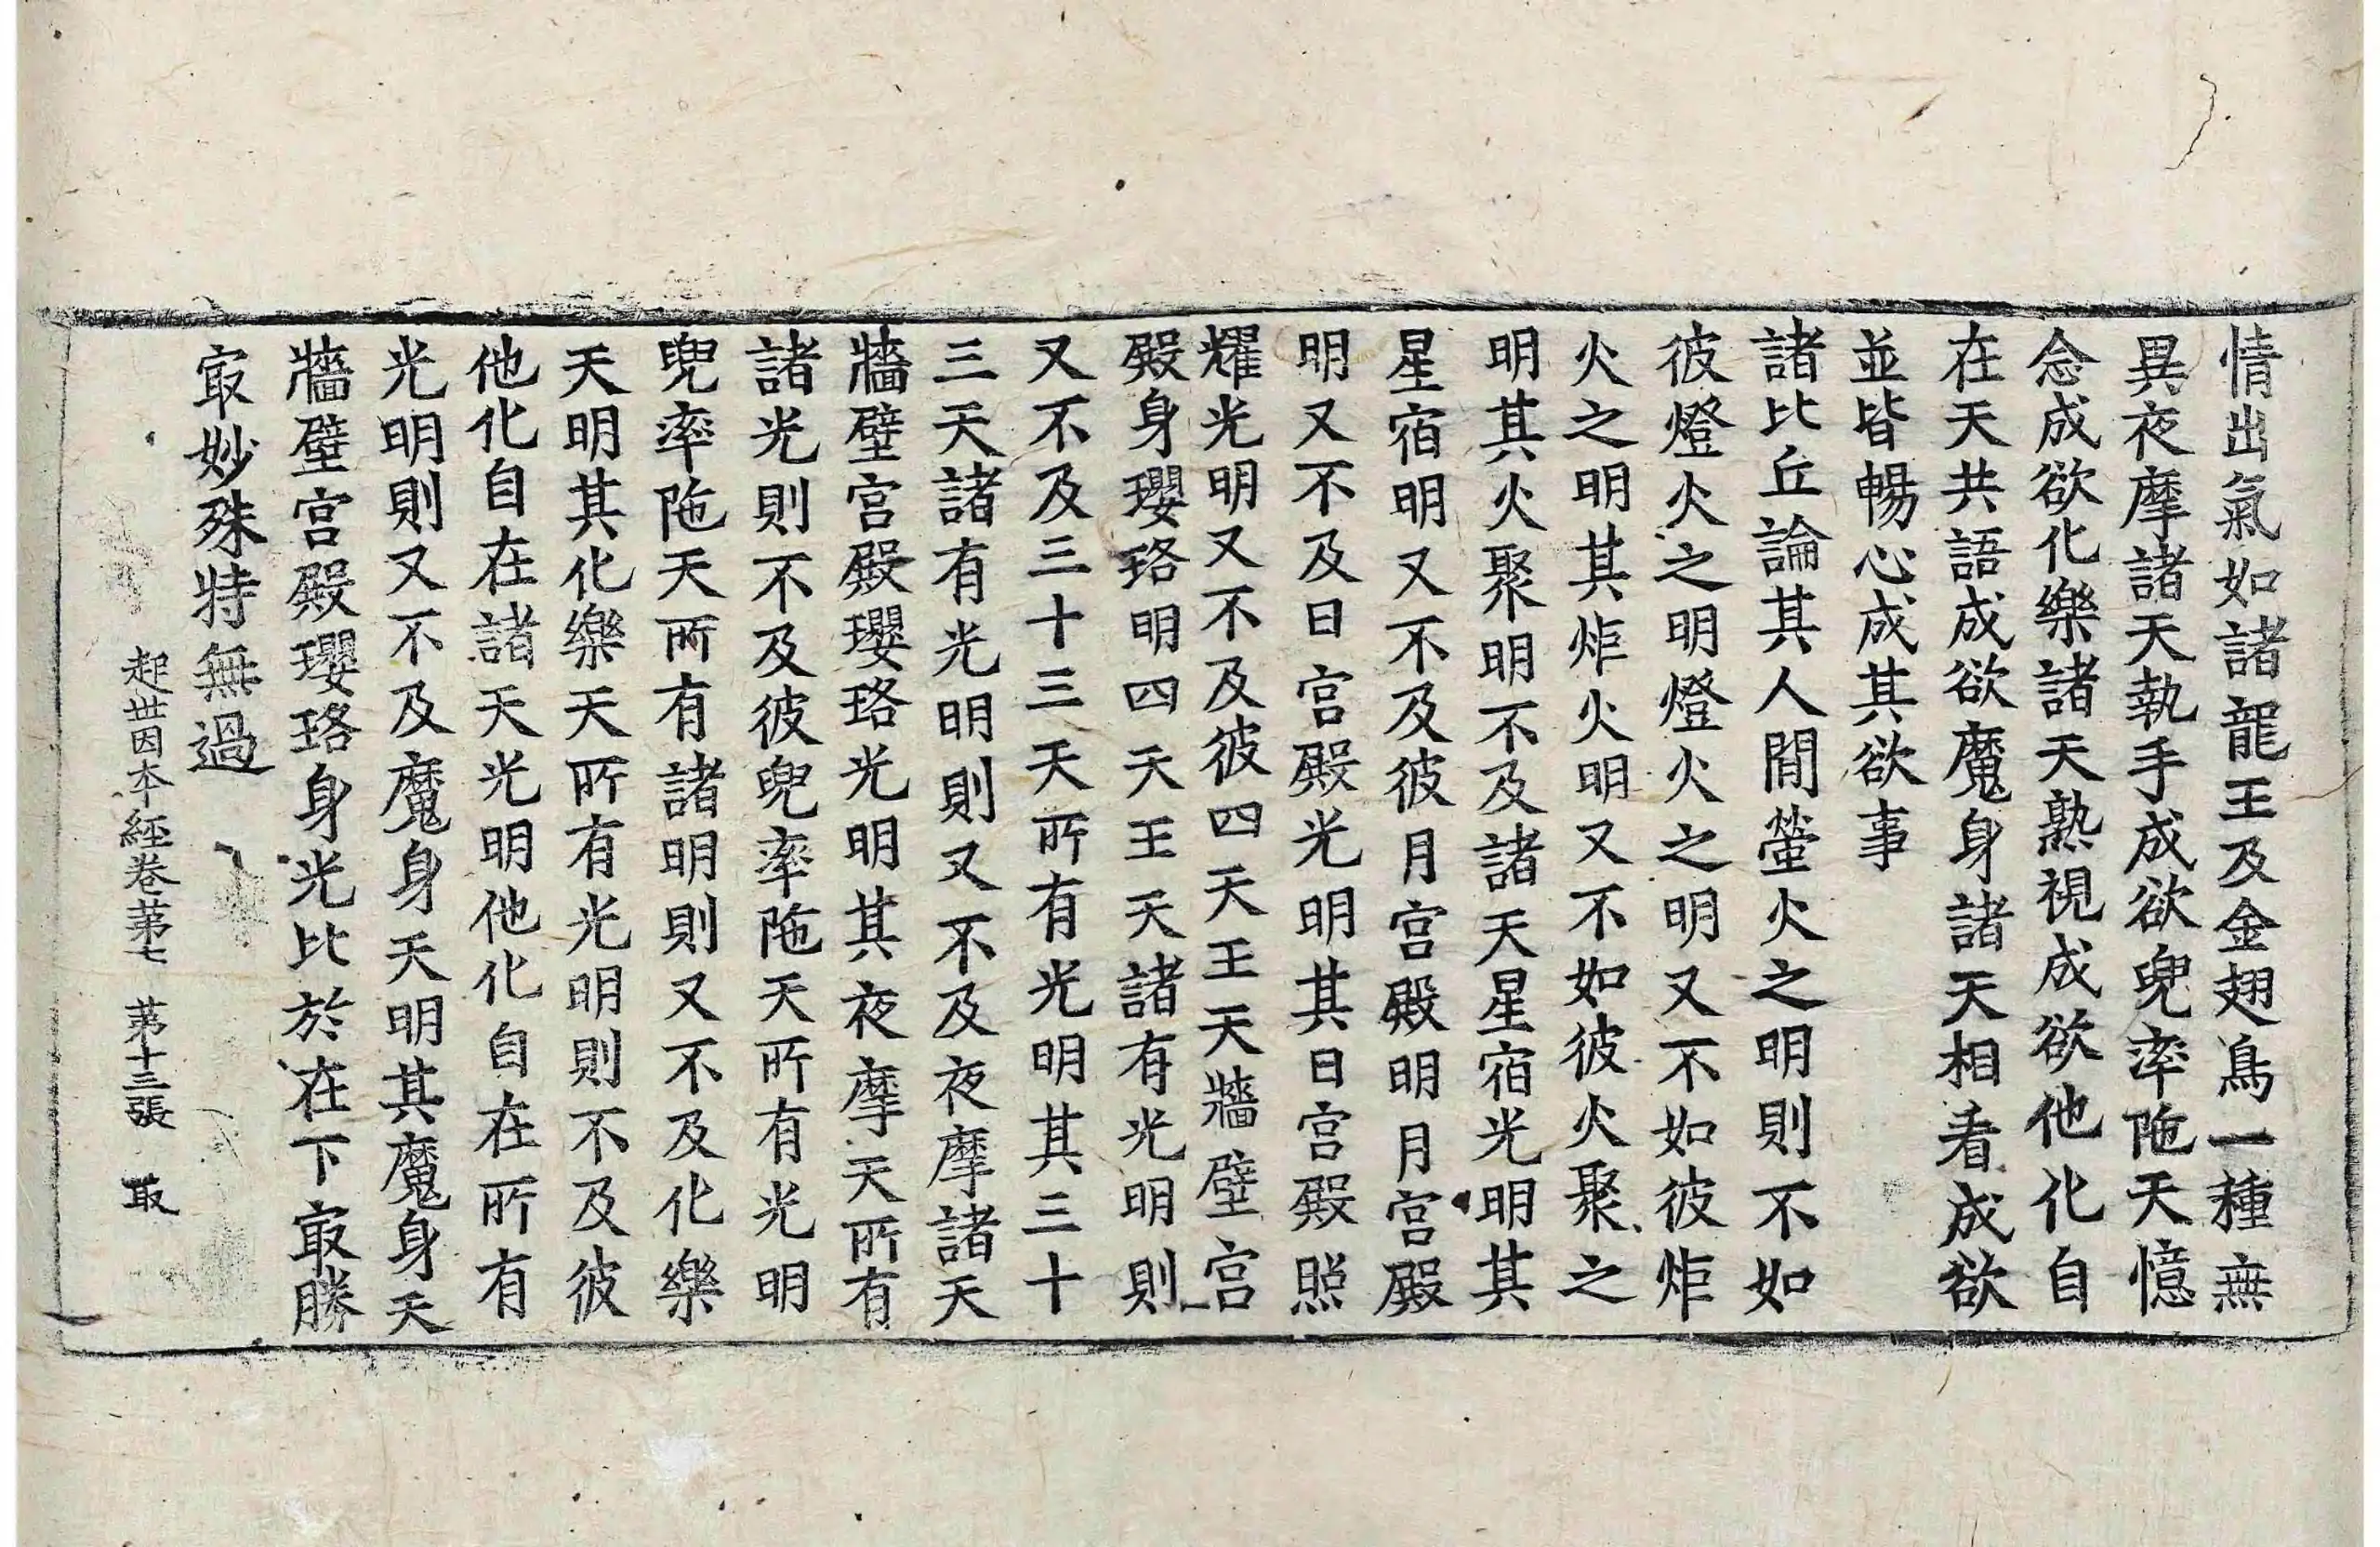 情出氣如諸龍王及金翅鳥一種無
異夜摩諸天執手成欲兜率陁天憶
念成欲化樂諸天熟視成欲他化自
在天共語成欲魔身諸天相看成欲
並皆暢心成其欲事
諸比丘論其人間螢火之明則不如
彼燈火之明燈火之明又不如彼炬
火之明其炬火明又不如彼火聚之
明其火聚明不及諸天星宿光明其
星宿明又不及彼月宮殿明月宮殿
明又不及日宮殿光明其日宮殿照
耀光明又不及彼四天王天牆壁宮
殿身瓔珞明四天王天諸有光明則
又不及三十三天所有光明其三十
三天諸有光明則又不及夜摩諸天
牆壁宮殿瓔珞光明其夜摩天所有
諸光則不及彼兜率陁天所有光明
兜率陁天所有諸明則又不及化樂
天明其化樂天所有光明則不及彼
他化自在諸天光明他化自在所有
光明則又不及魔身天明其魔身天
牆壁宮殿瓔珞身光比於在下㝡勝
㝡妙殊特無過
起世因本經卷苐七 苐十三張 取